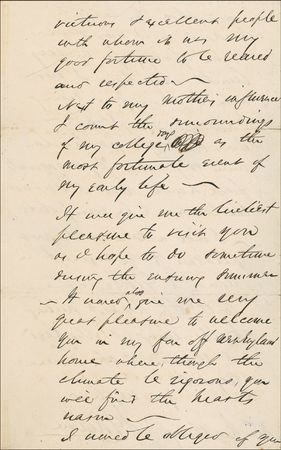 virtuous & excellent people
with whom it was my
good fortune to be reared
and respected —
Next to my mothers influence
I count the surroundings
of my college as the
most fortunate event of
my early life —
It will give me the liveliest
pleasure to visit you
as I hope to do sometime
during the ensuing summer
— It would also give me very
great pleasure to welcome
you in my far off
home where, though the
climate be rigorous, you
will find the hearts
warm —
I would be obliged if you